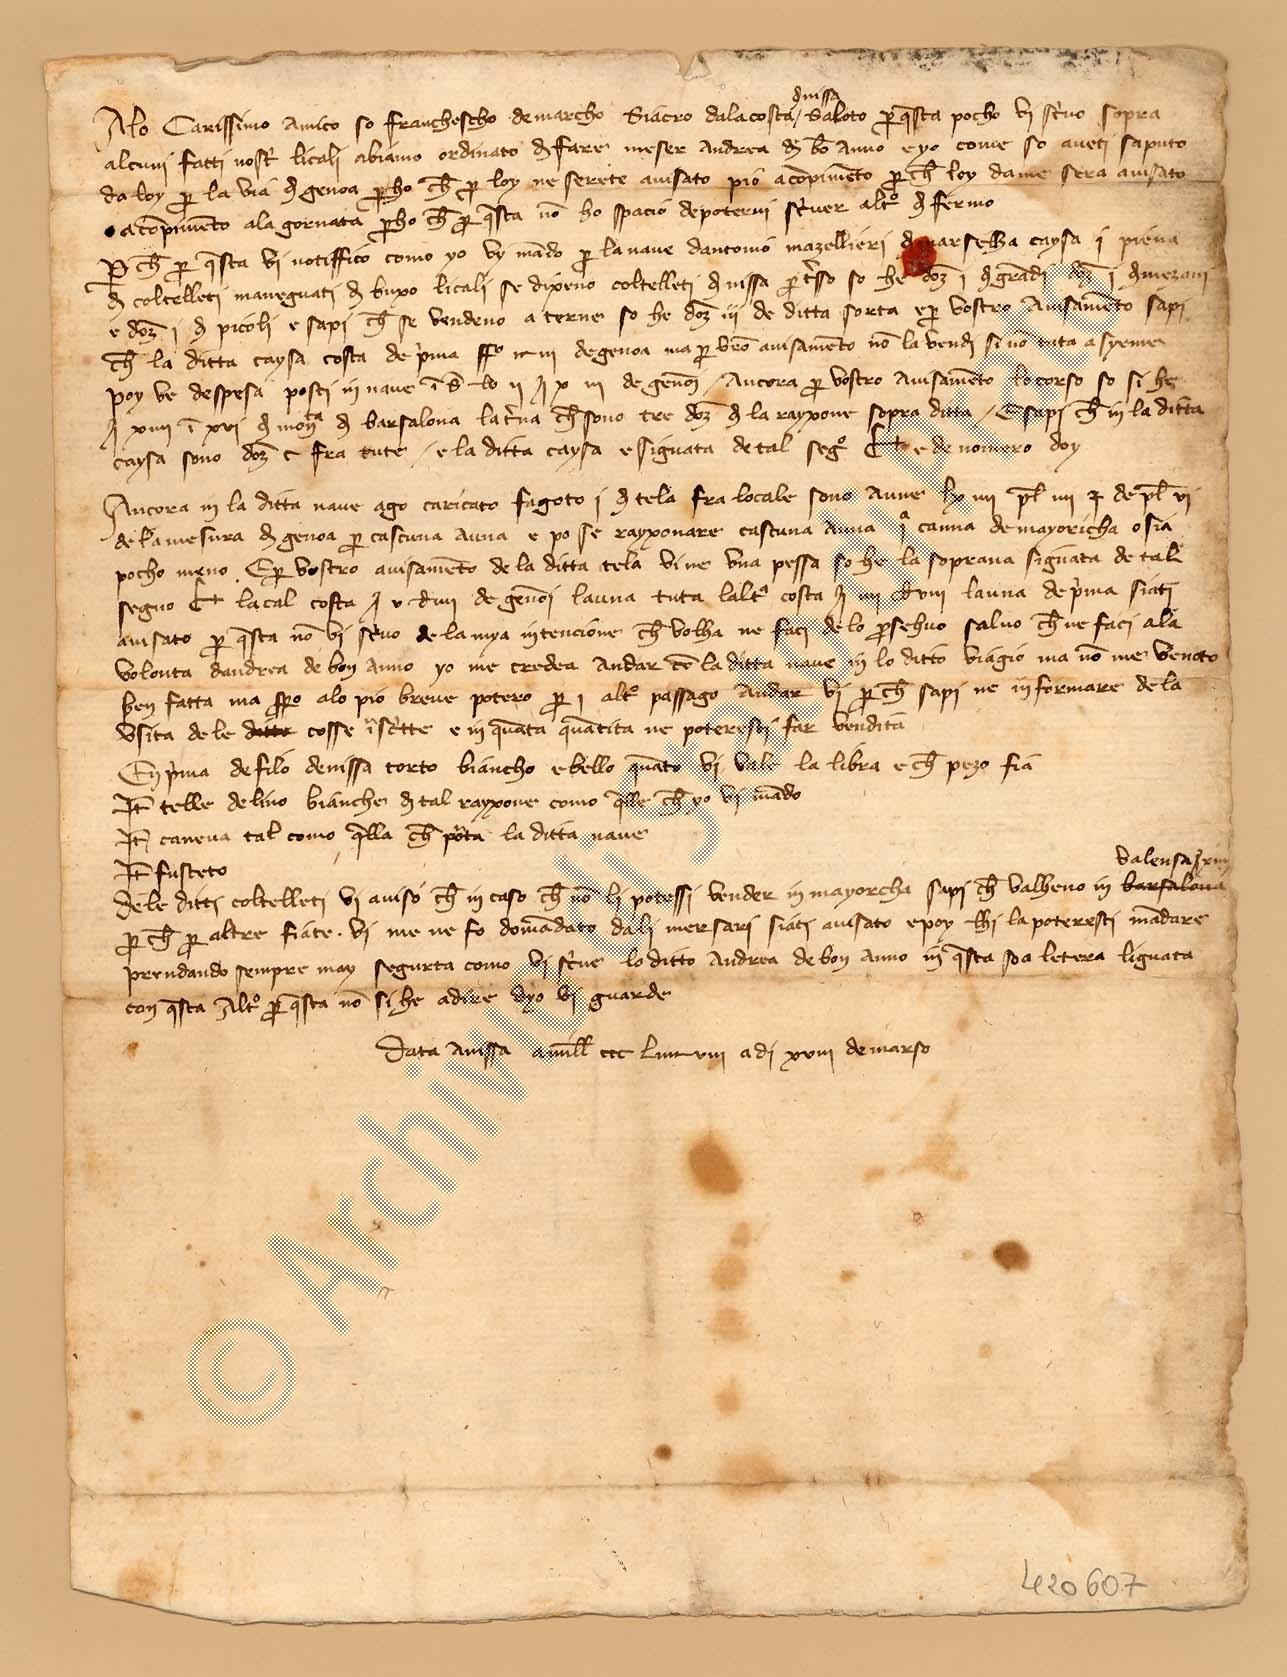 Alo Carissimo amico so franchescho demarcho Siacro dala costa d nissa Saloto per questa pocho vi scrivo sopra
alcuni fatti nostri licali abiamo ordinato de fare meser Andrea de bon Anno e yo come so aveti saputo
da loy per la via de genoa perho che per loy ne serete avisato pio a compimento per che loy da me sera avisato
a compimento ala gornata perho che per questa non ho spacio de potervi scriver altro de fermo
Per che per questa vi notiffico como yo vy mando per la nave dantonio mazellieri de marselha caysa i piena
de coltelleti maneguati de buxo licali se dixeno coltelleti de nissa per so he doz i de grandi doz i de mezani
e doz i de picoli e sapi che se vendeno a terne so he doz iii de ditta sorta e per vostro Avisamento sapi
che la ditta caysa costa de prima de genoa ma per vostro avisamento non la vendi si non tuta asyeme
poy ve despesa posti in nave de genoa / Ancora per vostro Avisamento lo corso so si he
xiiii in xvi de moneta de barsalona la terna che sono tre doz de la rayxone sopra ditta / E sapi che in la ditta
caysa sono doz c fra tute / e la ditta caysa e signata de tal segno e de nomero doy
Ancora in la ditta nave ago caricato fagoto i de tela fra locale sono Anne lx iiii pal iiii de pal vi
de la mesura de genoa per cascuna Auna e po se rayxonare cascuna Anna canna de mayoricha o sia
pocho meno E per vostro avisamento de la ditta tela vi ne una pessa so he la soprana signata de tal
segno la cal costa de genoa launa tuta laltra costa launa de prima siati
avisato per questa non vi scrivo de la mya intencione che volha ne faci de lo presehuo salvo che ne faci a la
volonta dandrea de bon Anno yo me credea Andar con la ditta nave in lo ditto viagio ma non me venoto
ben fatta ma spero alo pio breve potero per i altro passago Andar vi per che sapi ne informare de la
usita de le ditte cosse inscritte e in quanta quantita ne poteresti far vendita
En prima de filo de nissa torto biancho e bello quanto vi vale la libra e che pezo fia
Item telle de lino bianche de tal rayxone como quelle che yo vi mando
Item caneva tal como quella che porta la ditta nave
Item fusteto
valensa xiiii
De le ditti coltelleti vi aviso che in caso che non li potessi vender in mayorcha sapi che valheno in barsalona
per che per altre fiate vi me ne fo domandato dali mersari siati avisato e poy li la poteresti mandare
prendando sempre may segurta como vi scrive lo ditto Andrea de bon Anno in questa soa letera liguata
con questa Altro per questa non si he a dire dyo vi guarde
Data A nissa a mill ccc adi xviii de marso
420607
© Archivio di Stato di Prato